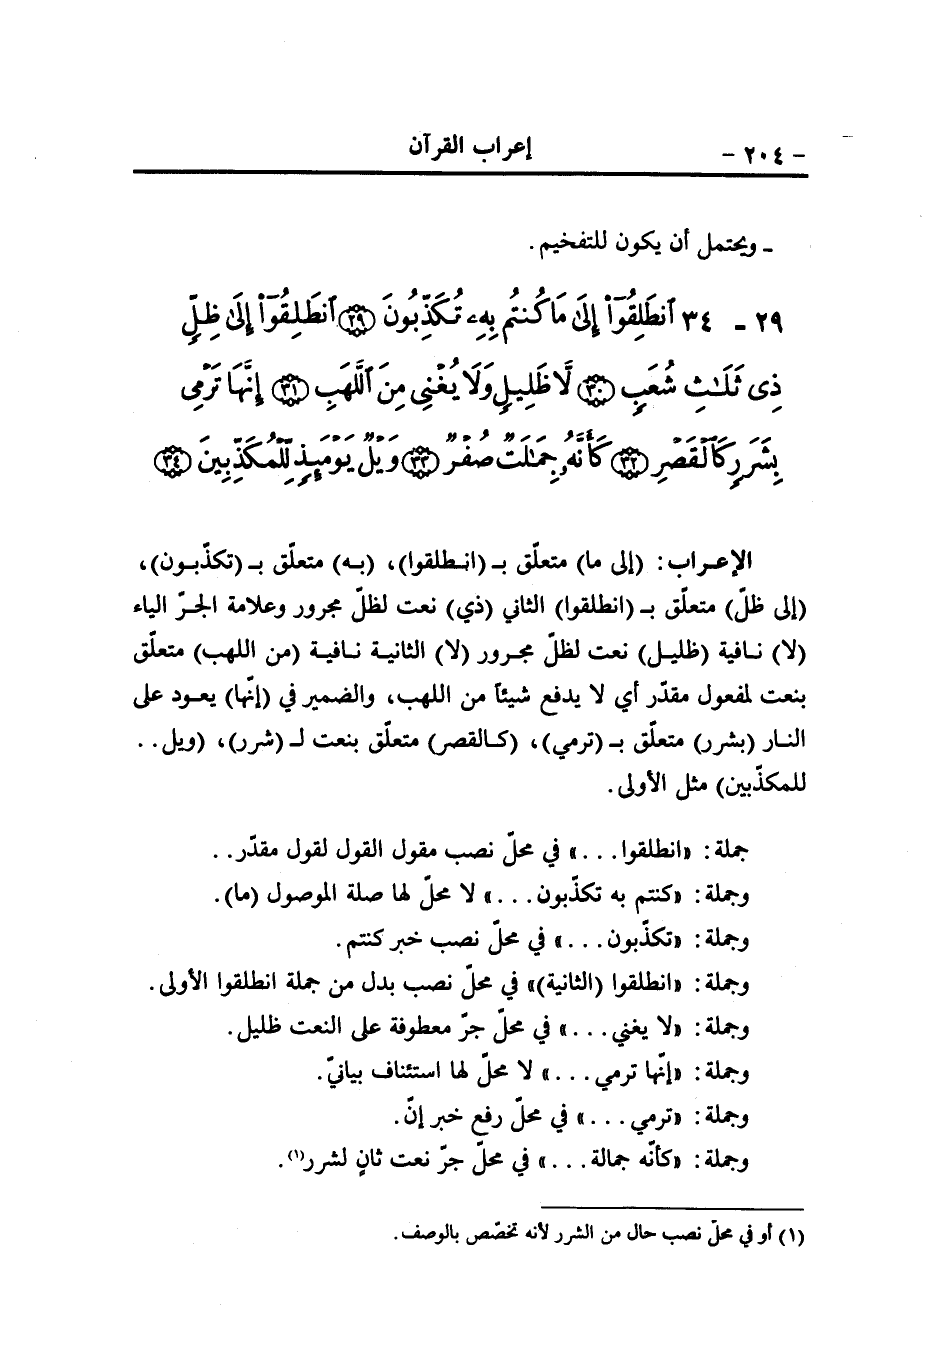 - ٢٠٤ - إعراب القرآن
ـ ويحتمل أن يكون للتفخيم.
٢٩ ـ ٣٤ ٱنطَلِقُوٓا۟ إِلَىٰ مَا كُنتُم بِهِۦ تُكَذِّبُونَ ﴿٢٩﴾ ٱنطَلِقُوٓا۟ إِلَىٰ ظِلٍّ
ذِى ثَلَٰثِ شُعَبٍ ﴿٣٠﴾ لَّا ظَلِيلٍ وَلَا يُغْنِى مِنَ ٱللَّهَبِ ﴿٣١﴾ إِنَّهَا تَرْمِى
بِشَرَرٍ كَٱلْقَصْرِ ﴿٣٢﴾ كَأَنَّهُۥ جِمَٰلَتٌ صُفْرٌ ﴿٣٣﴾ وَيْلٌ يَوْمَئِذٍ لِّلْمُكَذِّبِينَ ﴿٣٤﴾
الإعراب: (إلى ما) متعلّق بـ (انطلقوا)، (به) متعلّق بـ (تكذّبون)،
(إلى ظلّ) متعلّق بـ (انطلقوا) الثاني (ذي) نعت لظلّ مجرور وعلامة الجرّ الياء
(لا) نافية (ظليل) نعت لظلّ مجرور (لا) الثانية نافية (من اللهب) متعلّق
بنعت لمفعول مقدّر أي لا يدفع شيئاً من اللهب، والضمير في (إنّها) يعود على
النار (بشرر) متعلّق بـ (ترمي)، (كالقصر) متعلّق بنعت لـ (شرر)، (ويل. .
للمكذّبين) مثل الأولى.
جملة: «انطلقوا. . .» في محلّ نصب مقول القول لقول مقدّر. .
وجملة: «كنتم به تكذّبون. . .» لا محلّ لها صلة الموصول (ما).
وجملة: «تكذّبون. . .» في محلّ نصب خبر كنتم.
وجملة: «انطلقوا (الثانية)» في محلّ نصب بدل من جملة انطلقوا الأولى.
وجملة: «لا يغني. . .» في محلّ جرّ معطوفة على النعت ظليل.
وجملة: «إنّها ترمي. . .» لا محلّ لها استئناف بيانيّ.
وجملة: «ترمي. . .» في محلّ رفع خبر إنّ.
وجملة: «كأنّه جمالة. . .» في محلّ جرّ نعت ثانٍ لشرر(١).
(١) أو في محلّ نصب حال من الشرر لأنه تخصّص بالوصف.